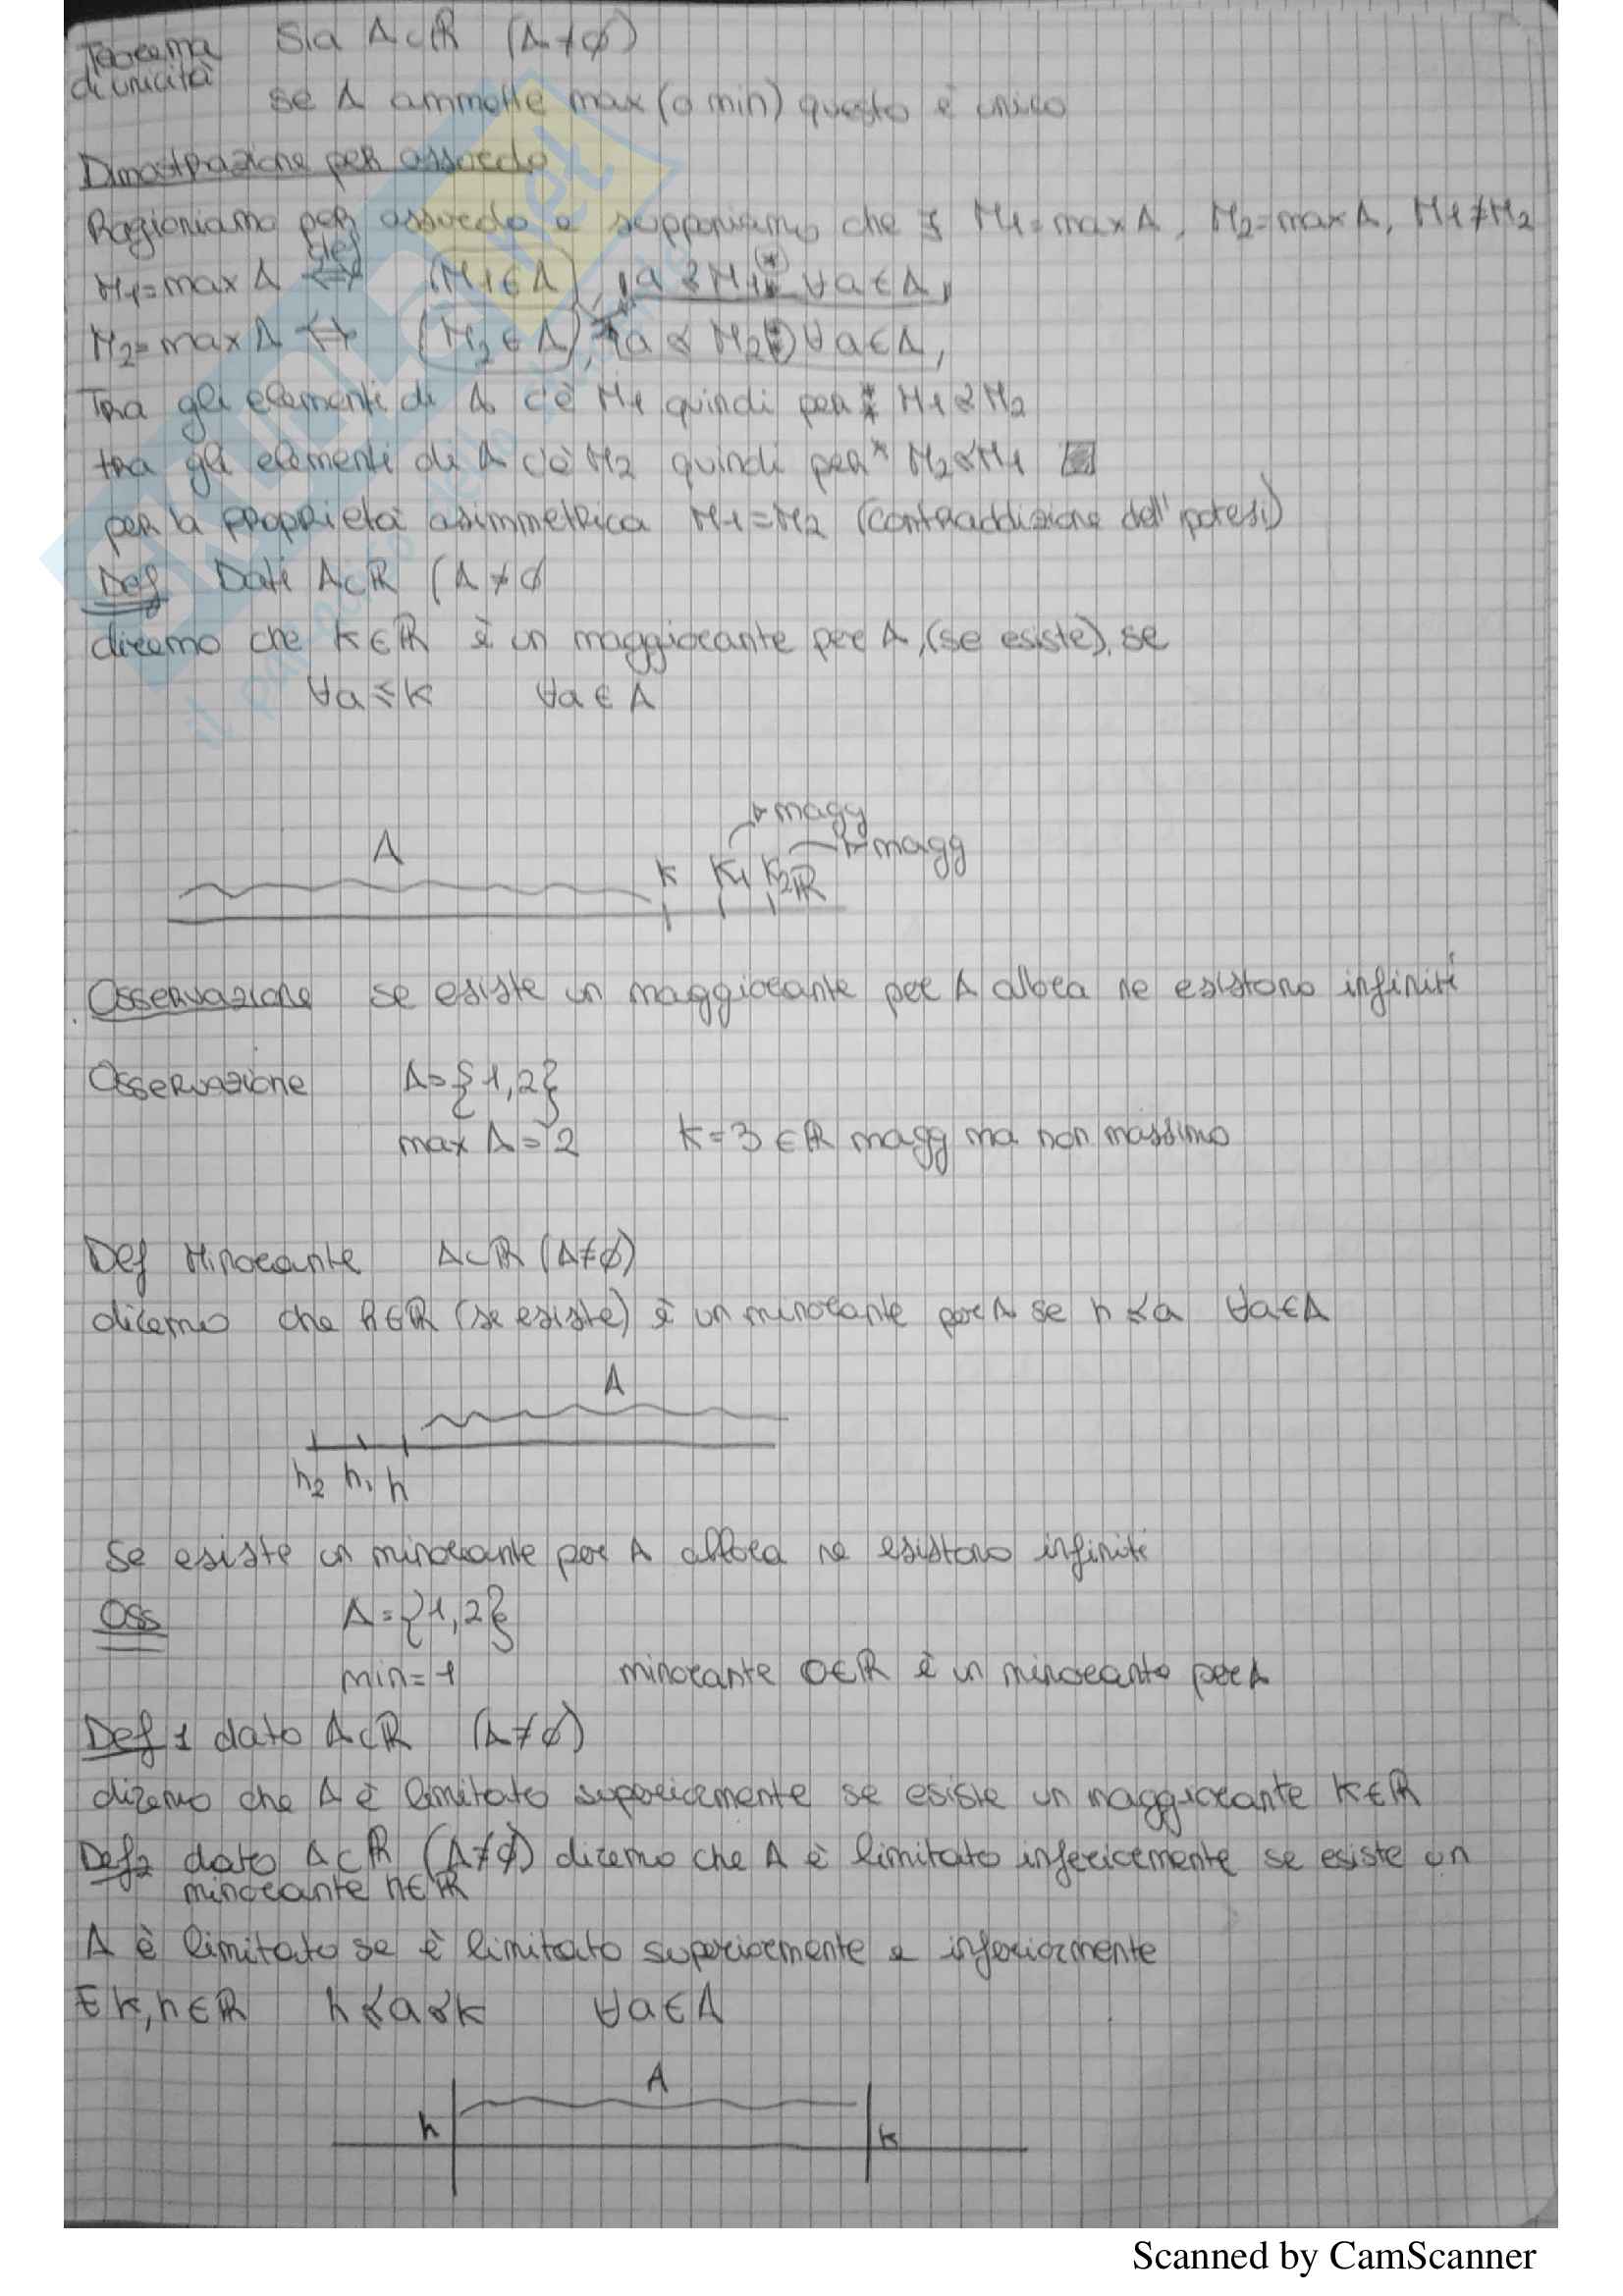 Teorema di unicità
Sia A⊂ℝ (A≠∅)
se A ammette max (o min) questo è unico
Dimostrazione per assurdo
Ragioniamo per assurdo e supponiamo che ∃ M1=max A, M2=max A, M1≠M2
M1=max A def⇔ (M1∈A), a≤M1 (*) ∀a∈A,
M2=max A ⇔ (M2∈A), a≤M2 ∀a∈A,
Tra gli elementi di A c'è M1 quindi per ** M1≤M2
tra gli elementi di A c'è M2 quindi per * M2≤M1
per la proprietà asimmetrica M1=M2 (contraddizione dell'ipotesi)
Def Dati A⊂ℝ (A≠∅
diremo che K∈ℝ è un maggiorante per A, (se esiste), se
∀a≤K ∀a∈A
→magg
A →magg
K K1 K2 ℝ
Osservazione se esiste un maggiorante per A allora ne esistono infiniti
Osservazione A={1,2}
max A=2 K=3∈ℝ magg ma non massimo
Def Minorante A⊂ℝ (A≠∅)
diremo che h∈ℝ (se esiste) è un minorante per A se h≤a ∀a∈A
A
h2 h1 h
Se esiste un minorante per A allora ne esistono infiniti
Oss A={1,2}
min=1 minorante 0∈ℝ è un minorante per A
Def 1 dato A⊂ℝ (A≠∅)
diremo che A è limitato superiormente se esiste un maggiorante K∈ℝ
Def2 dato A⊂ℝ (A≠∅) diremo che A è limitato inferiormente se esiste un
minorante h∈ℝ
A è limitato se è limitato superiormente e inferiormente
∃ K,h∈ℝ h≤a≤K ∀a∈A
A
h K
Scanned by CamScanner